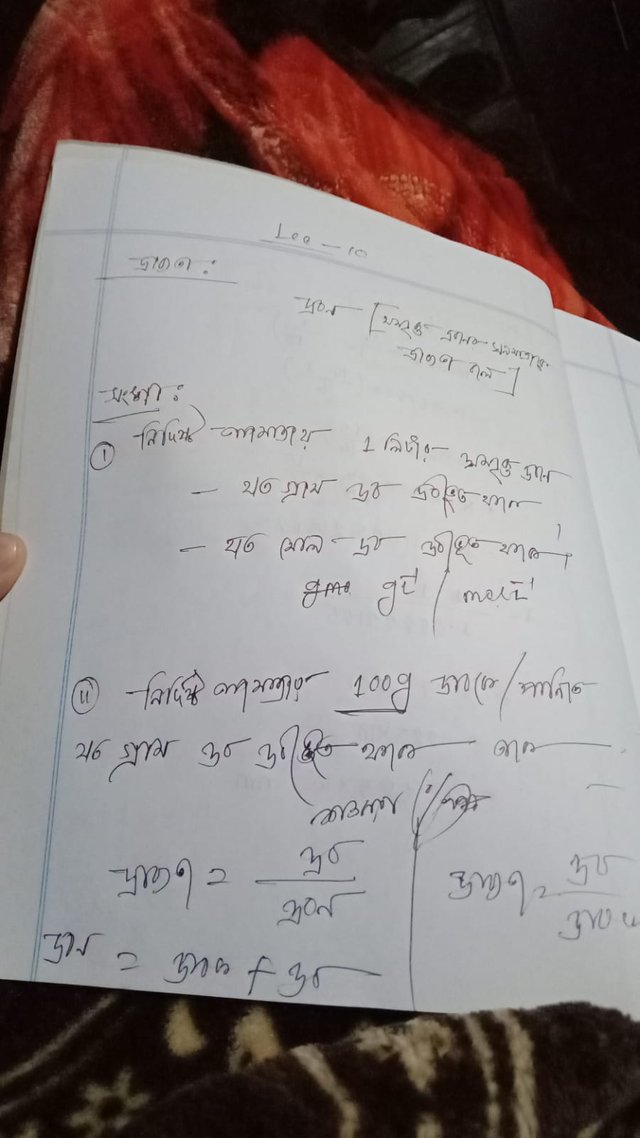 Lec - 10
দ্রাব্যতা :
দ্রবণ [সম্পৃক্ত দ্রবণের ঘনমাত্রাকে
দ্রাব্যতা বলে]
সংজ্ঞা :
i নির্দিষ্ট তাপমাত্রায় 1 লিটার সম্পৃক্ত দ্রবণে
- যত গ্রাম দ্রব দ্রবীভূত থাকে
- যত মোল দ্রব দ্রবীভূত থাকে।
gL⁻¹ / molL⁻¹
ii নির্দিষ্ট তাপমাত্রায় 100g দ্রাবকে/পানিতে
যত গ্রাম দ্রব দ্রবীভূত থাকে তাকে
দ্রাব্যতা = দ্রব / দ্রবণ
দ্রাব্যতা = দ্রব / দ্রাবক
দ্রবণ = দ্রাবক + দ্রব